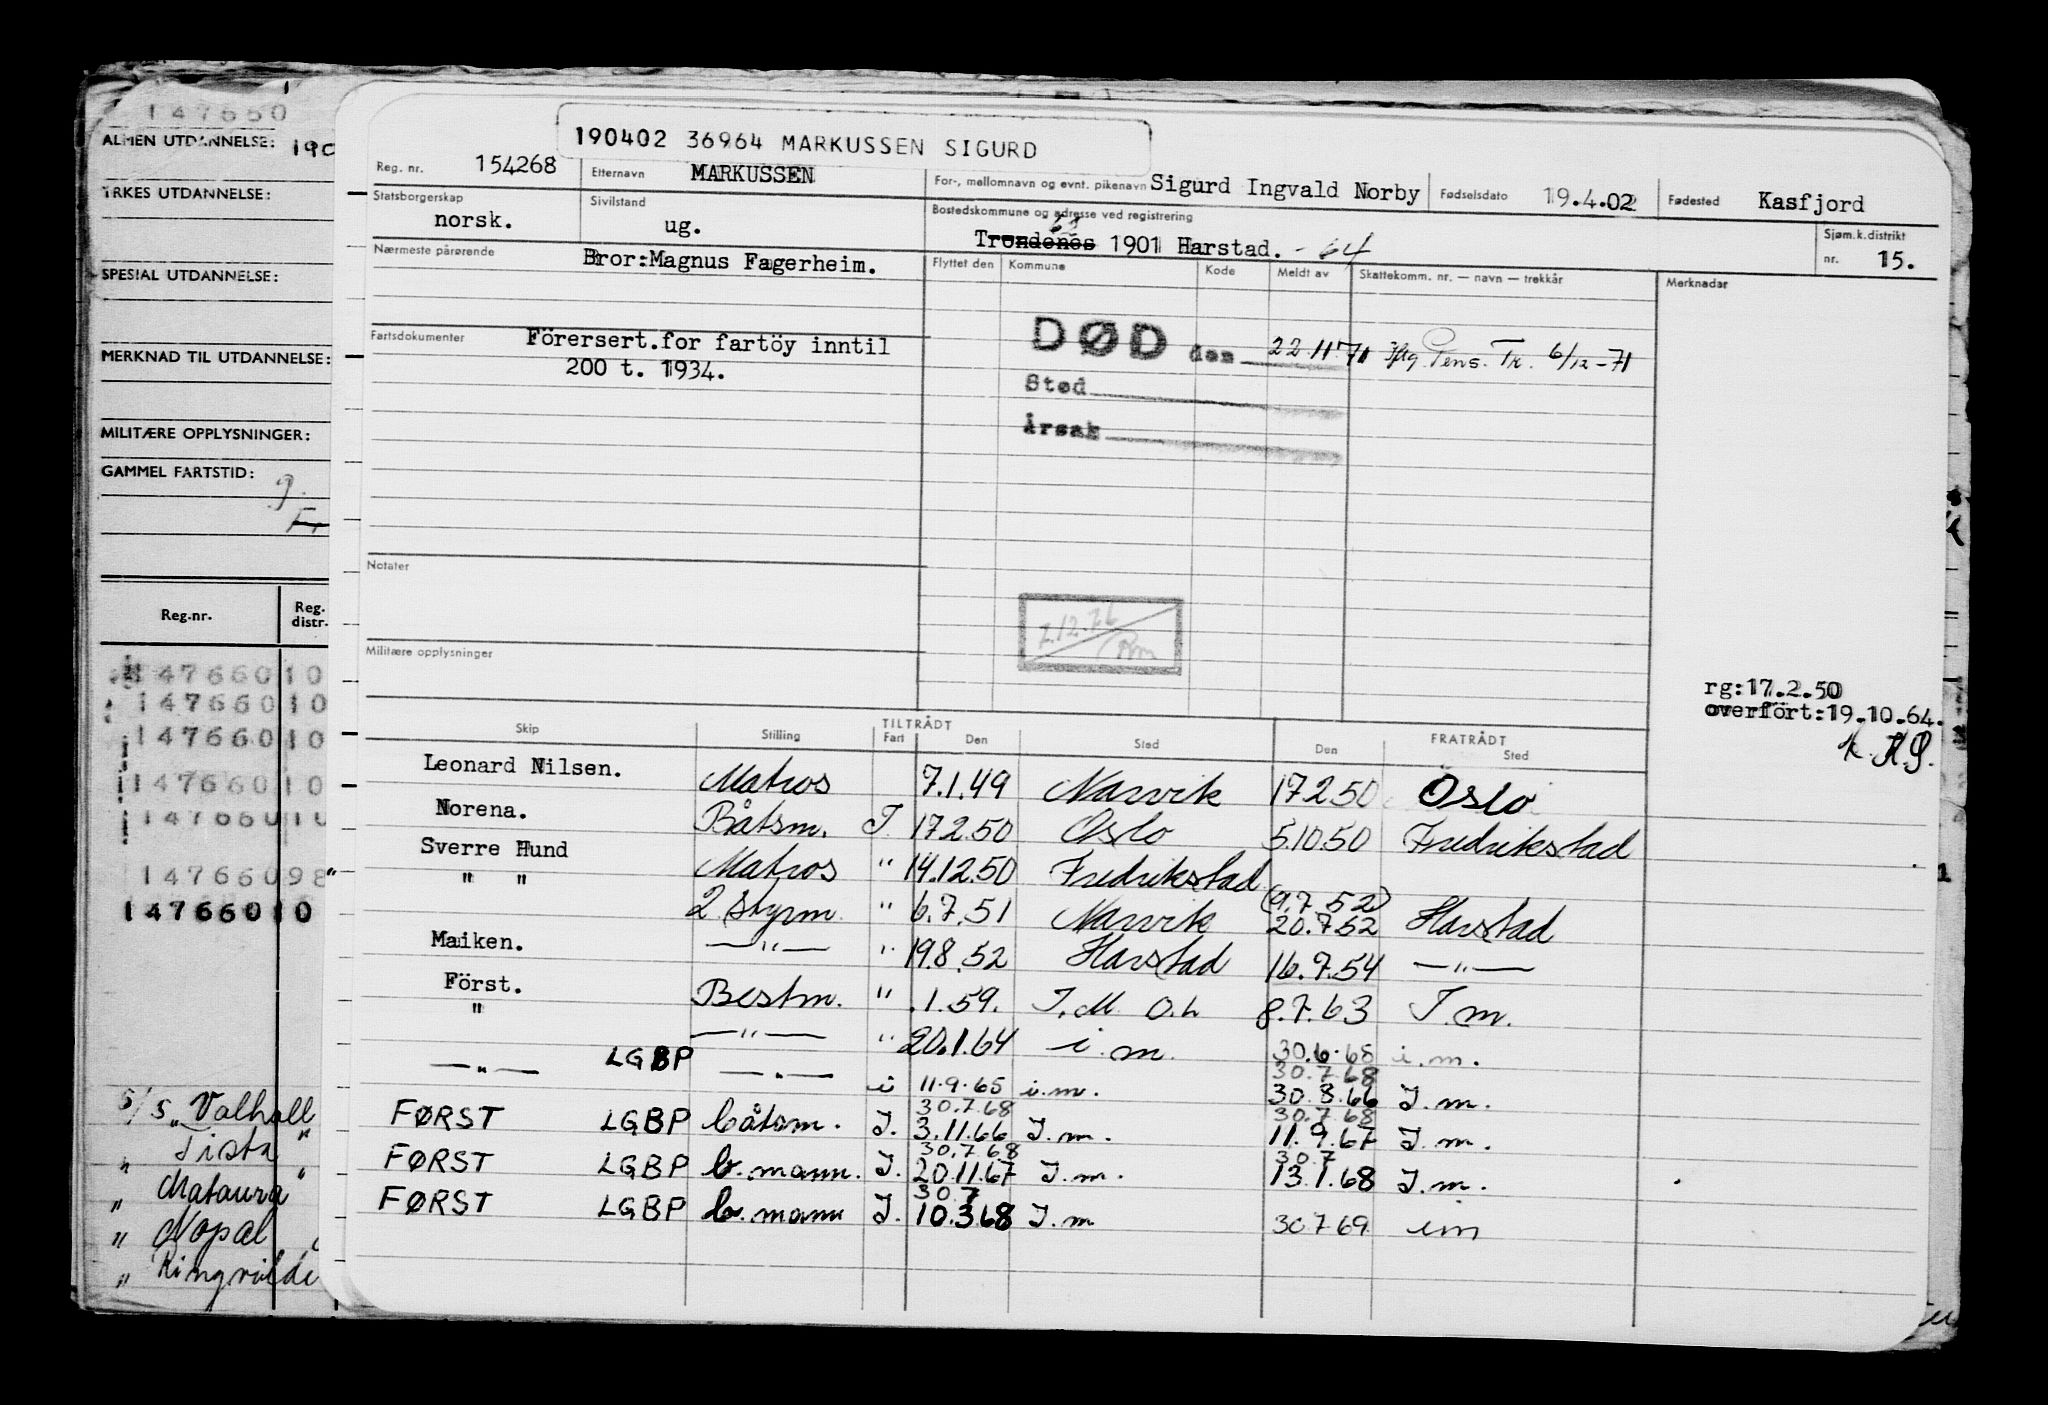 147660
ALMEN UTDANNELSE: 190
YRKES UTDANNELSE:
SPESIAL UTDANNELSE:
MERKNAD TIL UTDANNELSE:
MILITÆRE OPPLYSNINGER:
GAMMEL FARTSTID:
Reg.nr. Reg. distr.
147660 10
147660 10
147660 10
147660 10
147660 10
147660 98
147660 10
s/s „Valhall
„ Tista"
„ Mataura"
„ Nopal
„ Ringulda
190402 36964 MARKUSSEN SIGURD
Reg. nr. 154268 Etternavn MARKUSSEN For-, mellomnavn og evnt. pikenavn Sigurd Ingvald Norby Fødselsdato 19.4.02 Fødested Kasfjord
Statsborgerskap norsk. Sivilstand ug. Bostedskommune og adresse ved registrering
63
Trondenes 1901 Harstad. - 64 Sjøm.k.distrikt nr. 15.
Nærmeste pårørende Bror:Magnus Fagerheim. Flyttet den Kommune Kode Meldt av Skattekomm. nr. — navn — trekkår Merknader
Fartsdokumenter Förersert.for fartöy inntil
200 t. 1934.
DØD den 22.11.71 Pens. Tr. 6/12-71
Sted
Årsak
Notater
7.12.76
Militære opplysninger
rg:17.2.50
overfört:19.10.64.
Skip Stilling TILTRÅDT Fart Den Sted FRATRÅDT Den Sted
Leonard Nilsen. Matros 7.1.49 Narvik 17 2 50 Oslo
Norena. Båtsm. I 17 2.50 Oslo 5.10.50 Fredrikstad
Sverre Hund Matros " 14.12.50 Fredrikstad
" " 2 styrm. " 6.7.51 Narvik (9.7.52) 20.7.52 Harstad
Maiken. —"— " 19.8.52 Harstad 16.7.54 —"—
Först. Bestm. " .1.59. I.M. O.h 8.7.63 I.m.
" —"— " 20.1.64 i.m. 30.6.65 i.m.
—"— LGBP —"— i 11.9.65 i.m. 30.7.68 30.8.66 I.m.
FØRST LGBP båtsm. I. 30.7.68 3.11.66 I.m. 30.7.68 11.9.67 I.m.
FØRST LGBP b.mann. I. 30.7.68 20.11.67 I.m. 30.7 13.1.68 I.m.
FØRST LGBP b.mann I. 30.7 10.3.68 I.m 30.7.69 im